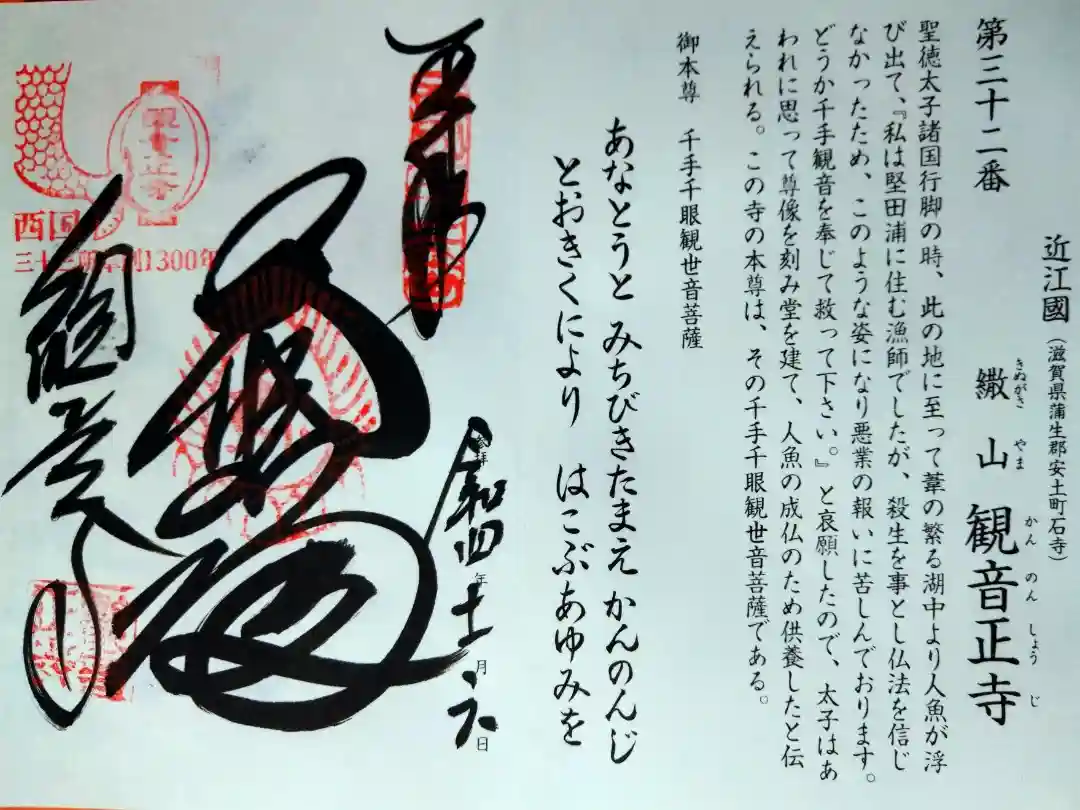 近江國（滋賀県蒲生郡安土町石寺）
第三十二番　繖山　観音正寺
きぬがさ　やま　かんのんしょうじ
聖徳太子諸国行脚の時、此の地に至って葦の繁る湖中より人魚が浮
び出て、『私は堅田浦に住む漁師でしたが、殺生を事とし仏法を信じ
なかったため、このような姿になり悪業の報いに苦しんでおります。
どうか千手観音を奉じて救って下さい。』と哀願したので、太子はあ
われに思って尊像を刻み堂を建て、人魚の成仏のため供養したと伝
えられる。この寺の本尊は、その千手千眼観世音菩薩である。
御本尊　千手千眼観世音菩薩
あなとうと　みちびきたまえ　かんのんじ
とおきくにより　はこぶあゆみを
参拝
令和四年十一月六日
西国
三十三所草創1300年
観音正寺